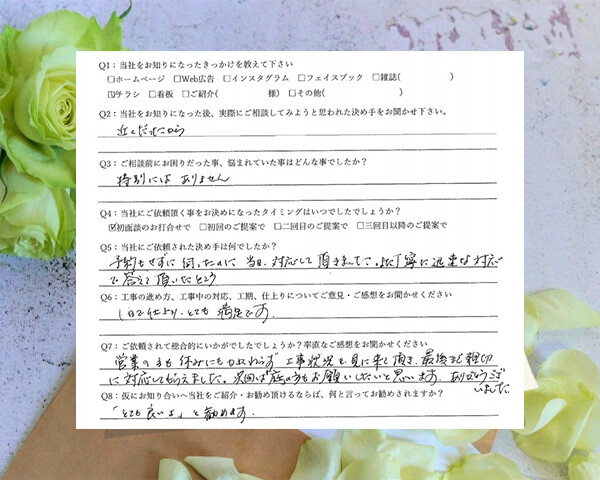 Q1：当社をお知りになったきっかけを教えて下さい
□ホームページ □Web広告 □インスタグラム □フェイスブック □雑誌( )
☑チラシ □看板 □ご紹介( 様) □その他( )
Q2：当社をお知りになった後、実際にご相談してみようと思われた決め手をお聞かせ下さい。
近くだったから
Q3：ご相談前にお困りだった事、悩まれていた事はどんな事でしたか？
特別には ありません
Q4：当社にご依頼頂く事をお決めになったタイミングはいつでしたでしょうか？
☑初面談のお打合せで □初回のご提案で □二回目のご提案で □三回目以降のご提案で
Q5：当社にご依頼された決め手は何でしたか？
予約もせずに 伺ったのに 当日、対応して頂きまして、また丁寧に迅速な対応
で答えて頂いたところ
Q6：工事の進め方、工事中の対応、工期、仕上りについてご意見・ご感想をお聞かせください
1日で仕上り、とても 満足です。
Q7：ご依頼されて総合的にいかがでしたでしょうか？率直なご感想をお聞かせください
営業の方も休みにもかかわらず 工事状況を見に来て頂き、最後まで親切
に対応してもらえました。次回は庭の方もお願いしたいと思います。ありがとうござ
いました。
Q8：仮にお知り合いへ当社をご紹介・お勧め頂けるならば、何と言ってお勧めされますか？
「とても良いよ」と勧めます.